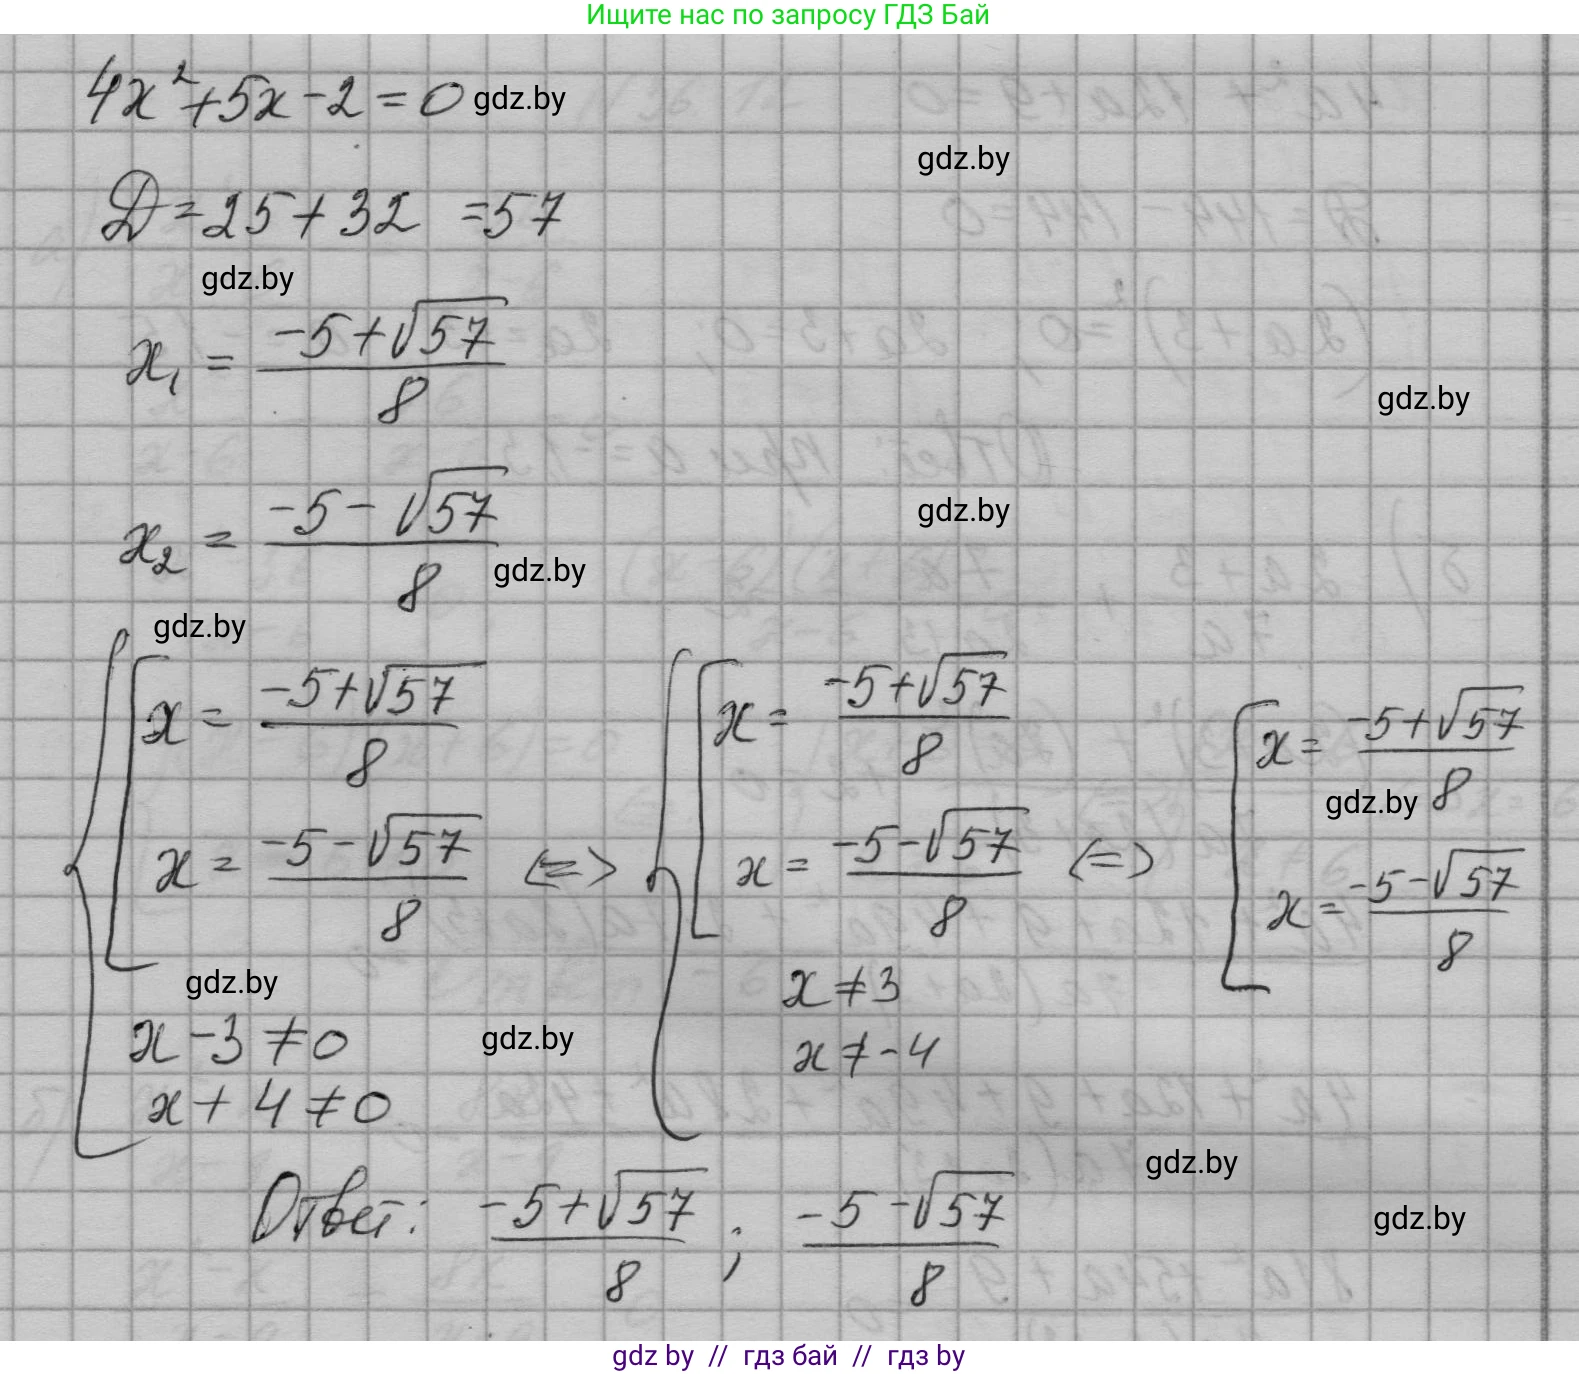 Ищите нас по запросу ГДЗ Бай
4x²+5x-2=0 gdz.by
gdz.by
Д=25+32 =57
gdz.by
x₁ = (-5+√57)/8
gdz.by
x₂ = (-5-√57)/8
gdz.by
gdz.by
gdz.by
{ [ x = (-5+√57)/8 { [ x = (-5+√57)/8 [ x = (-5+√57)/8
gdz.by
x = (-5-√57)/8 <=> x = (-5-√57)/8 <=> x = (-5-√57)/8
gdz.by
x-3≠0 gdz.by x≠3
x+4≠0 x≠-4
gdz.by
Ответ: (-5+√57)/8 ; (-5-√57)/8
gdz.by
gdz by // гдз бай // гдз by